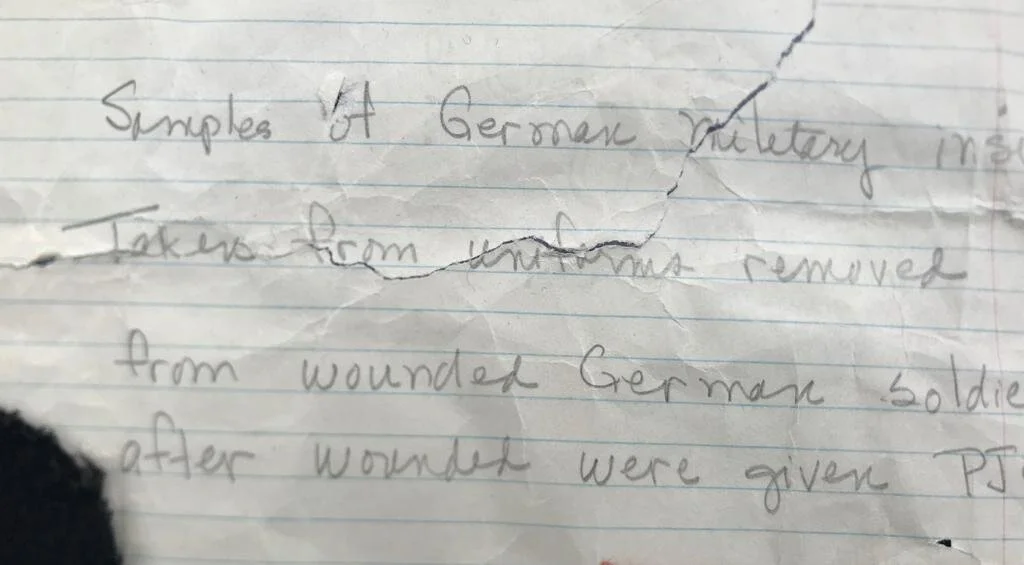 Samples of German military insi
Taken from uniforms removed
from wounded German soldie
after wounded were given PJ